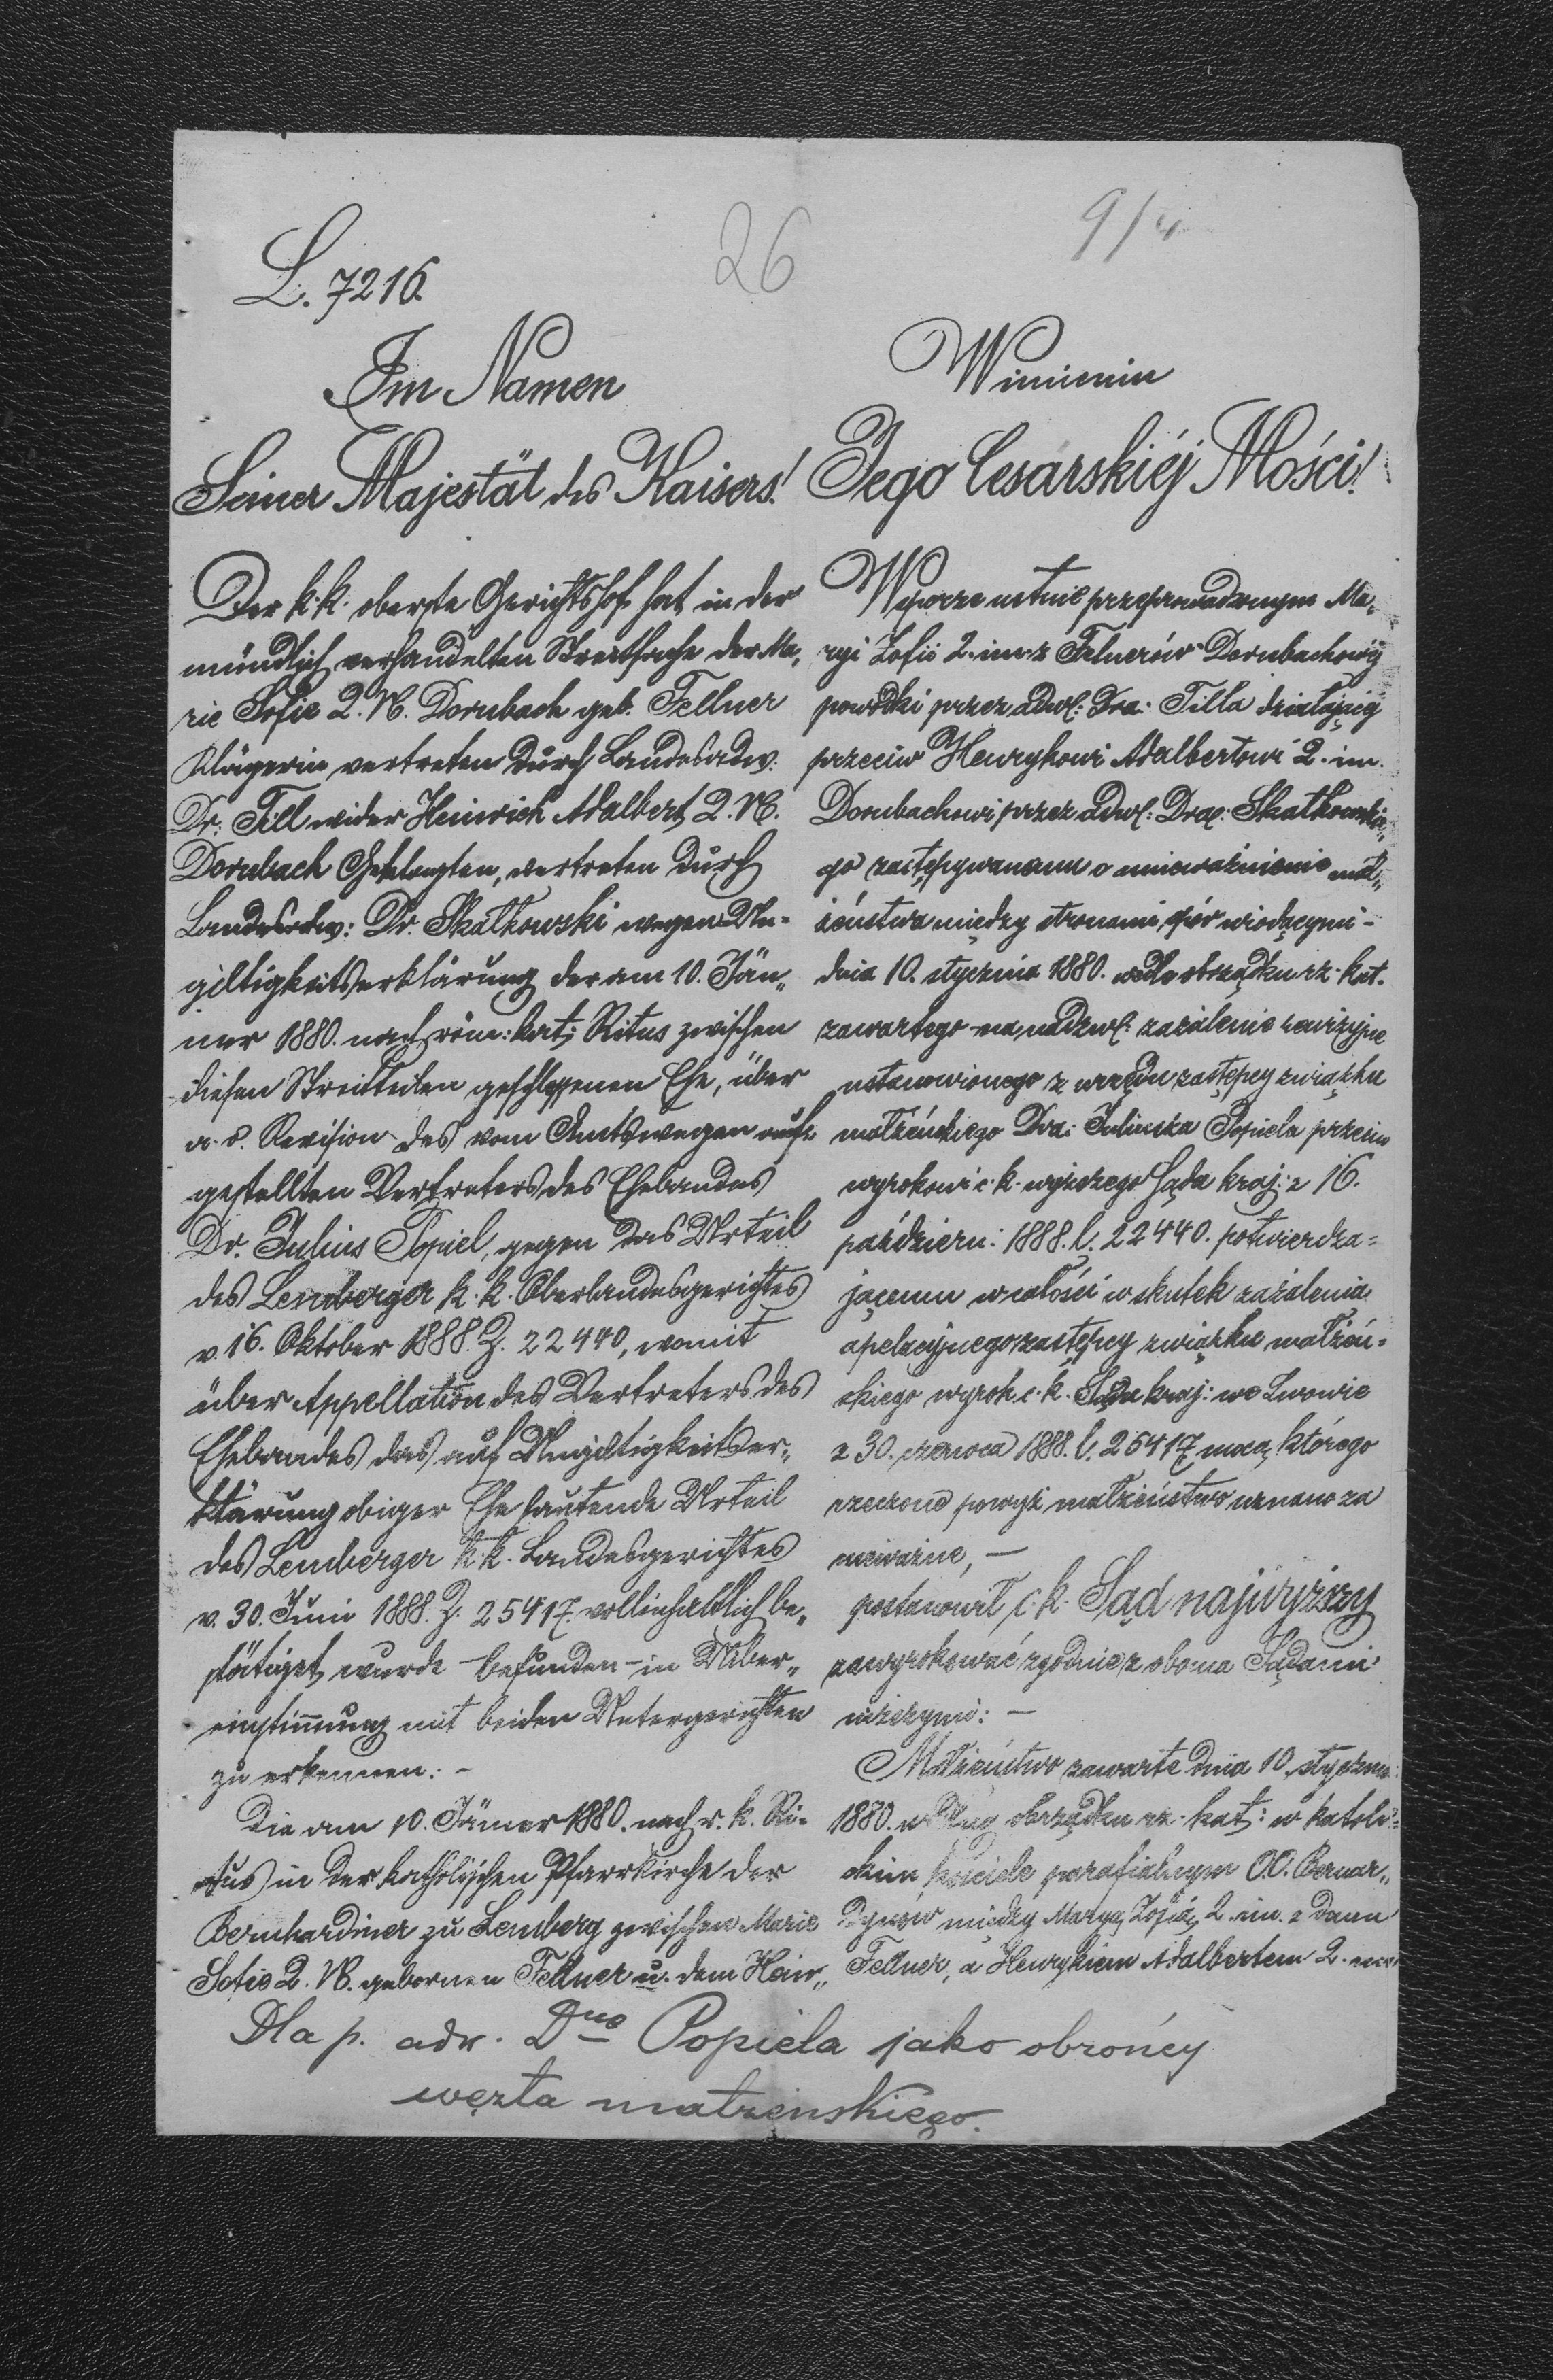 26
9/4
L. 7216.
Im Namen
Seiner Majestät des Kaisers!
Der k. k. oberste Gerichtshof hat in der
mündlich verhandelten Streitsache der Ma„
rie Sofie 2. N. Dornbach geb. Fellner
Klägerin vertreten durch Landesadv.
Dr. Till wider Heinrich Adalbert 2. N.
Dornbach Geklagten, vertreten durch
Landesadv: Dr. Skałkowski wegen Un-
giltigkeitserklärung der am 10. Jän„
ner 1880. nach röm: kat: Ritus zwischen
diesen Streitteilen geschlossenen Ehe, über
a. o. Revision des vom Amtswegen auf-
gestellten Vertreters des Ehebandes
Dr. Julius Popiel, gegen das Urteil
des Lemberger k. k. Oberlandesgerichtes
v. 16. Oktober 1888. Z. 22440, womit
über Appellation des Vertreters des
Ehebandes das auf Ungiltigkeitser„
klärung obiger Ehe lautende Urteil
des Lemberger k. k. Landesgerichtes
v. 30. Juni 1888. Z. 25417 vollinhaltlich be„
stätiget wurde – befunden – in Über„
einstimmung mit beiden Untergerichten
zu erkennen: –
Die am 10. Jänner 1880. nach r. k. Ri-
tus in der katholischen Pfarrkirche der
Bernhardiner zu Lemberg zwischen Marie
Sofie 2. N. gebornen Fellner u. dem Hein„
W imieniu
Jego Cesarskiéj Mości!
W sporze ustnie przeprowadzonym Ma„
ryi Zofii 2. im. z Felnerów Dornbachowéj
powódki przez adw: Dra: Tilla działającéj
przeciw Henrykowi Adalbertowi 2. im.
Dornbachowi przez adw: Dra: Skałkowskie„
go zastępywanemu o unieważnienie mał„
żeństwa między stronami spór wiodącymi –
dnia 10. stycznia 1880. wedle obrządku rz. kat.
zawartego – na nadzw: zażalenie rewizyjne
ustanowionego z urzędu zastępcy związku
małżeńskiego Dra: Juliusza Popiela przeciw
wyrokowi c. k. wyższego Sądu kraj: z 16.
październ: 1888. l. 22440. potwierdza-
jącemu w całości w skutek zażalenia
apelacyjnego zastępcy związku małżeń-
skiego wyrok c. k. Sądu kraj: we Lwowie
z 30. czerwca 1888. l. 25417 mocą którego
rzeczone powyż małżeństwo uznano za
nieważne, –
postanowił c. k. Sąd najwyższy
zawyrokować zgodnie z oboma Sądami
niższymi: –
Małżeństwo zawarte dnia 10. styczn:
1880. według obrządku rz. kat: w katoli-
ckim kościele parafialnym OO. Bernar„
dynów między Maryą Zofią 2. im. z domu
Fellner, a Henrykiem Adalbertem 2. im.
Dla p. adw. Dra Popiela jako obrońcy
węzła małżeńskiego.